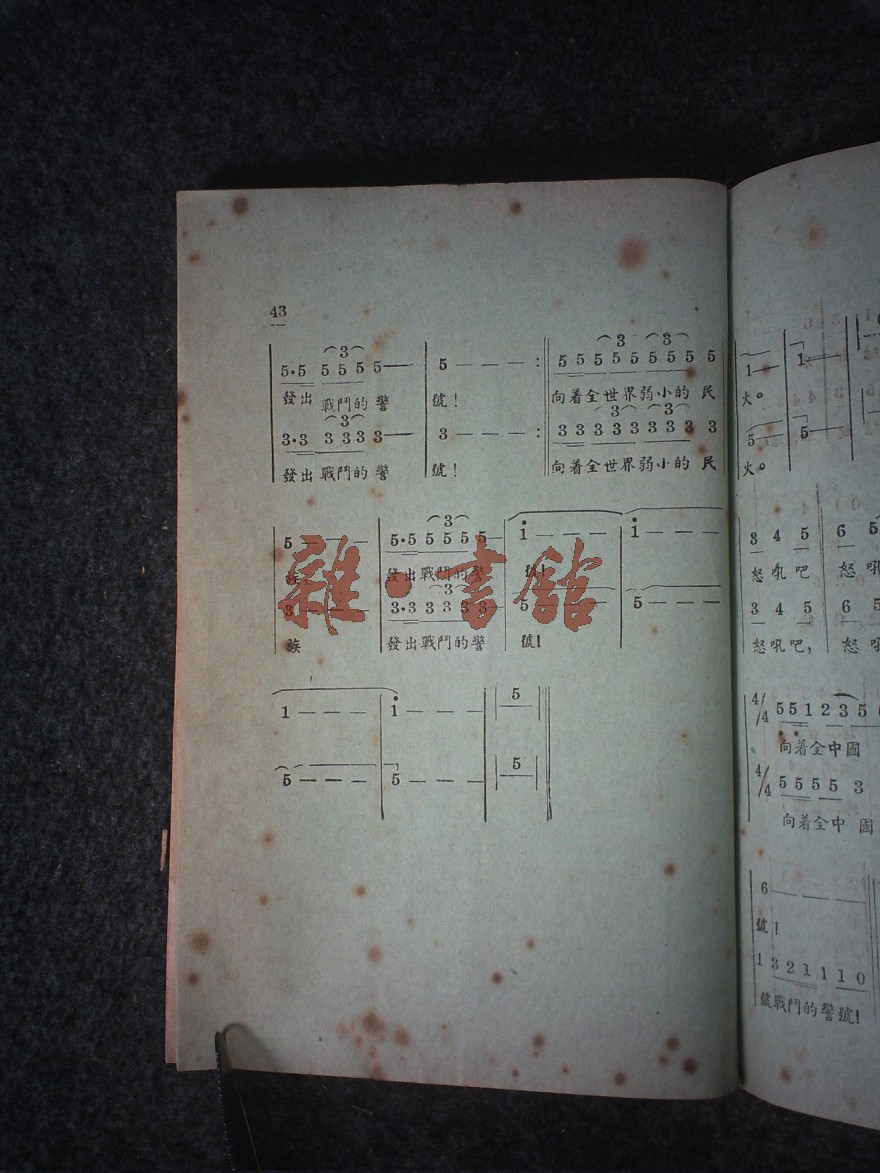 43
5·5 5 5 5 5— 5 — — — : 5 5 5 5 5 5 5 5 5
發出 戰鬥的 警 號! 向着全世界弱小的 民
3·3 3 3 3 3— 3 — — — : 3 3 3 3 3 3 3 3 3
發出 戰鬥的 警 號! 向着全世界弱小的 民
5 — — — 5·5 5 5 5 5— i — — — i — — —
族, 發出戰鬥的警 號!
3 — — — 3·3 3 3 3 3— 5 — — — 5 — — —
族 發出戰鬥的警 號!
1 — — — i — — — 5
5 — — — 5 — — — 5
雜·書館
1— 1—
火。
5— 5—
火。
3 4 5 6 5
怒吼吧 怒吼
3 4 5 6 5
怒吼吧, 怒吼
4/4 5 5 1 2 3 5
向着全中國
4/4 5 5 5 5 3
向着全中 國
6 — — —
號!
1 3 2 1 1 1 0
號戰鬥的警號!